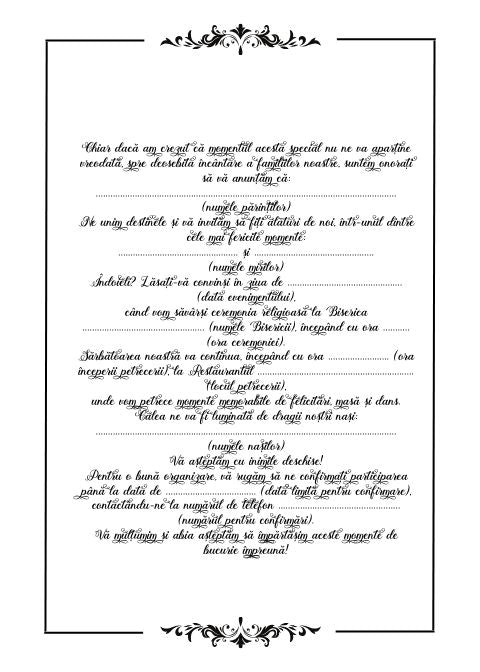 Chiar dacă am crezut că momentul acesta special nu ne va aparține
vreodată, spre deosebita încântare a familiilor noastre, suntem onorați
să vă anunțăm că:
................................................................
(numele părinților)
Ne unim destinele și vă invităm să fiți alături de noi, într-unul dintre
cele mai fericite momente:
.......................................... și ..........................................
(numele mirilor)
Îndoieli? Lăsați-vă convinși în ziua de ......................................
(data evenimentului),
când vom săvârși ceremonia religioasă la Biserica
......................................... (numele Bisericii), începând cu ora .........
(ora ceremoniei).
Sărbătoarea noastră va continua, începând cu ora .................... (ora
începerii petrecerii), la Restaurantul ....................................................
(locul petrecerii),
unde vom petrece momente memorabile de felicitări, masă și dans.
Calea ne va fi luminată de dragii noștri nași:
....................................................................................................
(numele nașilor)
Vă așteptăm cu inimile deschise!
Pentru o bună organizare, vă rugăm să ne confirmați participarea
până la data de .............................. (data limită pentru confirmare),
contactându-ne la numărul de telefon ........................................
(numărul pentru confirmări).
Vă mulțumim și abia așteptăm să împărtășim aceste momente de
bucurie împreună!